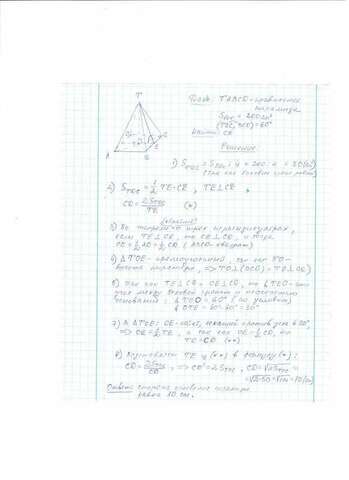 T
A
B
E
O
Дано: TABCD - правильная
пирамида
Sбок = 200 см²
(TDC, BCD) = 60°
Найти: CD
Решение
1) STDC = Sбок : 4 = 200 : 4 = 50 (см²)
(так как боковые грани равны)
2) STDC = 1/2 TE · CD, TE⊥CD,
CD = 2STDC / TE (*)
(обратной)
3) По теореме о трех перпендикулярах,
если TE⊥CD, то OE⊥CD, и тогда
OE = 1/2 AD = 1/2 CD (ABCD - квадрат)
4) ΔTOE - прямоугольный, так как TO -
высота пирамиды, ⇒ TO⊥(DCO) ⇒ TO⊥OE
6) Так как TE⊥CD, OE⊥CD, то ∠TEO -
угол между боковой гранью и плоскостью
основания: ∠TEO = 60° (по условию)
∠OTE = 90° - 60° = 30°
7) В ΔTOE: OE - катет, лежащий против угла в 30°,
⇒ OE = 1/2 TE, а так как OE = 1/2 CD, то
TE = CD (**)
8) Подставляем TE из (**) в формулу (*):
CD = 2STDC / CD, ⇒ CD² = 2STDC, CD = √2STDC =
= √2·50 = √100 = 10 (см)
Ответ: сторона основания пирамиды
равна 10 см.